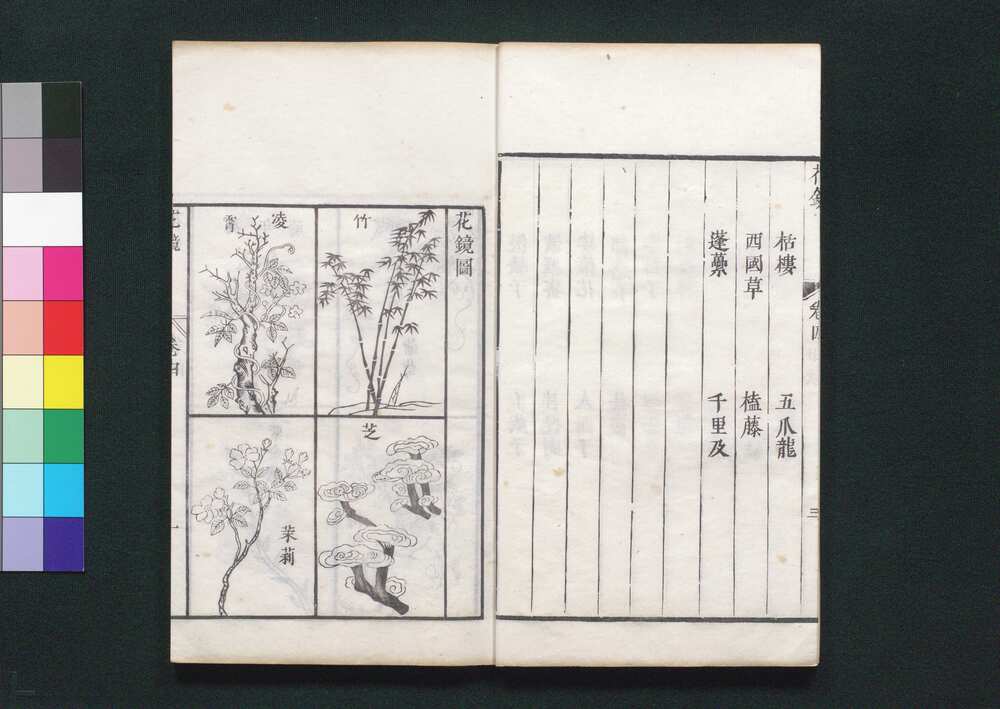 花鏡
卷四
三
枯樓
五爪龍
西國草
榼藤
蓬蘽
千里及
花鏡圖
竹
芝
凌霄
茉莉
花鏡
卷四
一